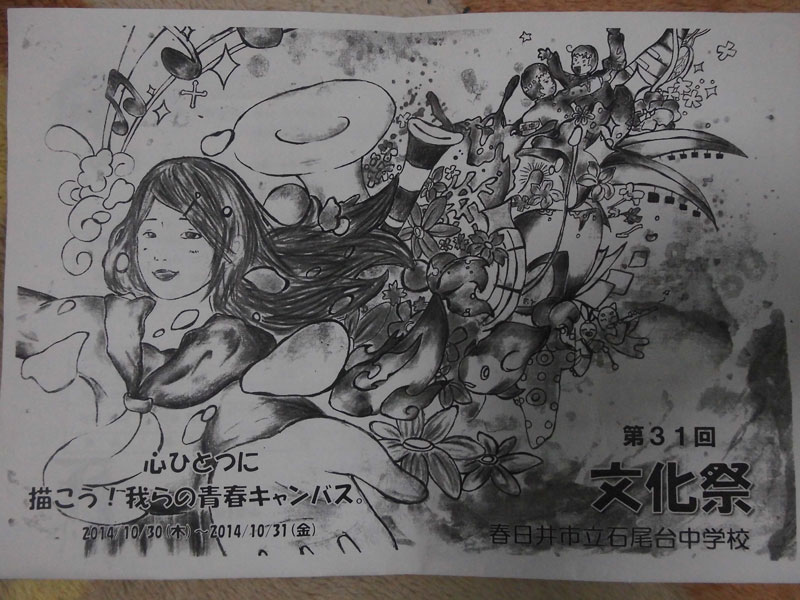 心ひとつに
描こう!我らの青春キャンバス。
2014/10/30(木)~2014/10/31(金)
第31回
文化祭
春日井市立石尾台中学校